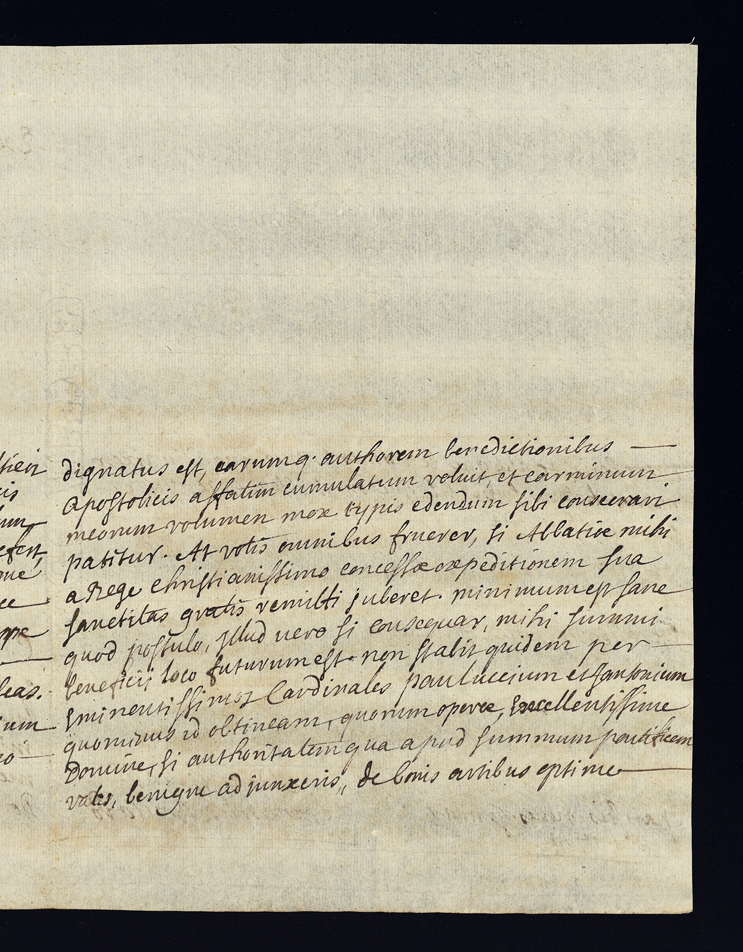 dignatus est, earumq. authorem benedictionibus
Apostolicis affatim cumulatum voluit, et carminum
meorum volumen mox typis edendum sibi consecrari
patitur. At votis omnibus fruerer, si Abbatiæ mihi
a Rege christianissimo concessæ expeditionem sua
sanctitas gratis remitti juberet. minimum est sane
quod postulo, illud vero si consequar, mihi summi
beneficii loco futurum est. non stabit quidem per
Eminentissimos Cardinales pauluccium et santonium
quominus id obtineam, quorum operæ, Excellentissime
Domine, si authoritatem qua apud summum pontificem
vales, benigne adjunxeris, de bonis artibus optime